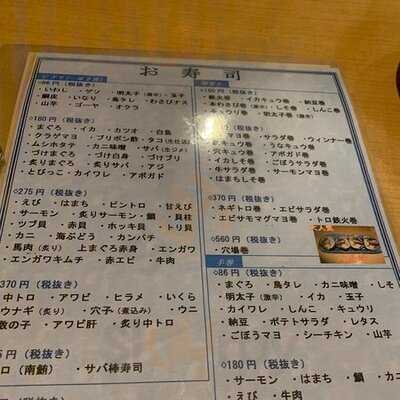 お寿司
○86円(税抜き)
・いわし ・ゲソ ・明太子(激辛) ・玉子
・鯛皮 ・いなり ・鳥タレ ・わさびナス
・山芋 ・ゴーヤ ・オクラ
○180円(税抜き)
・まぐろ ・イカ ・カツオ ・白島
・クラゲマヨ ・プリポン酢 ・タコ(生仕込)
・ムシホタテ ・カニ味噌 ・サバ(生ジメ)
・づけまぐろ ・づけ白身 ・づけブリ
・炙りまぐろ ・炙りサバ ・アジ
・とびっこ ・カイワレ ・アボガド
○275円(税抜き)
・えび ・はまち ・ビントロ ・甘えび
・サーモン ・炙りサーモン ・鯛 ・貝柱
・ツブ貝 ・赤貝 ・ホッキ貝 ・トリ貝
・カニ ・海ぶどう ・カンパチ
・馬肉(炙り) 上まぐろ赤身 ・エンガワ
・エンガワキムチ ・赤エビ ・牛肉
370円(税抜き)
中トロ ・アワビ ・ヒラメ ・いくら
ウナギ(炙り) ・穴子(煮込み) ・ウニ
数の子 ・アワビ肝 ・炙り中トロ
円(税抜き)
トロ(南鮪) ・サバ棒寿司
○160円(税抜き)
・鉄火巻 ・イカキュウ巻 ・納豆巻
・本わさび巻(激辛) ・しそ巻 ・しんこ巻
・キュウリ巻 ・明太子巻(激辛)
・サラダ巻 ・ウィンナー巻
・うなキュウ巻
・穴キュウ巻 ・アボガド巻
・イカしそ巻 ・ごぼうサラダ巻
・牛サラダ巻 ・サーモンマヨ巻
・はまちしそ巻
○370円(税抜き)
・ネギトロ巻 ・エビサラダ巻
・エビサモマグマヨ巻 ・トロ鉄火巻
○560円(税抜き)
・穴場巻
手巻
○86円(税抜き)
・まぐろ ・鳥タレ ・カニ味噌 ・しそ
・明太子(激辛) ・イカ ・玉子
・カイワレ ・しんこ ・キュウリ
・納豆 ・ポテトサラダ ・レタス
・ごぼうマヨ ・シーチキン ・山芋
○180円(税抜き)
・サーモン ・はまち ・鯛 ・カニ
・えび ・牛肉